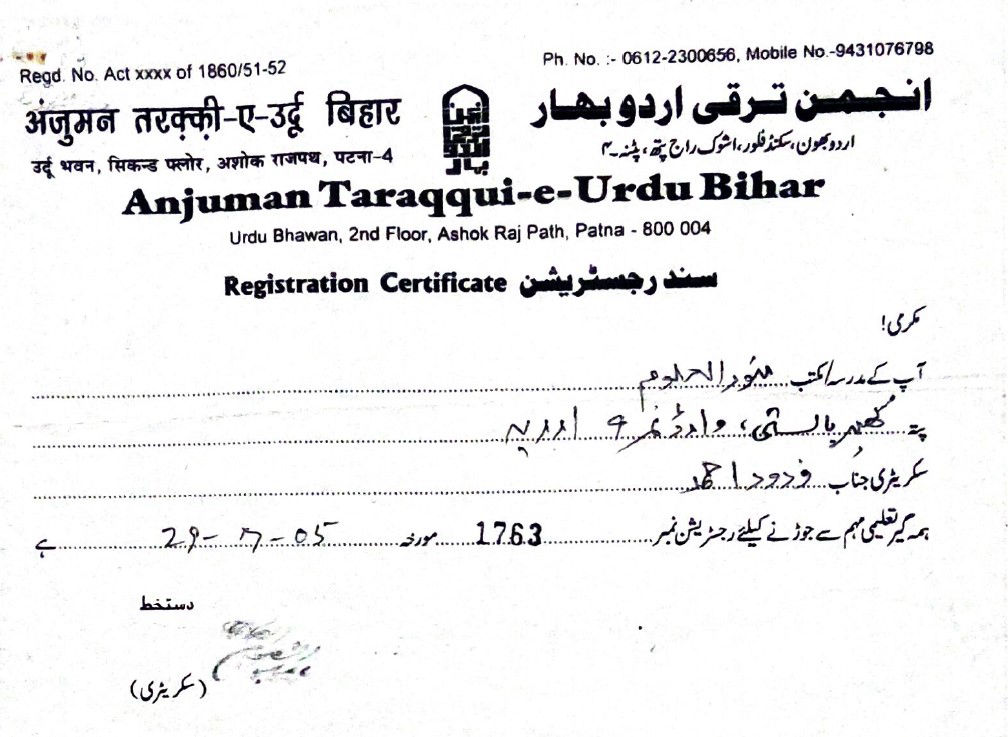 Regd. No. Act xxxx of 1860/51-52
Ph. No. :- 0612-2300656, Mobile No.-9431076798
अंजुमन तरक़्क़ी-ए-उर्दू बिहार
انجمن ترقی اردو بهار
उर्दू भवन, सिकन्ड फ्लोर, अशोक राजपथ, पटना-4
اردو بھون، سکنڈ فلور، اشوک راج پتھ، پٹنہ۔۴
Anjuman Taraqqui-e-Urdu Bihar
Urdu Bhawan, 2nd Floor, Ashok Raj Path, Patna - 800 004
Registration Certificate سند رجسٹریشن
مکرمی!
آپ کے مدرسہ/مکتب العلوم
پتہ وارڈ نمبر 9 ارریہ
سکریٹری جناب احمد
ہمہ گیر تعلیمی مہم سے جوڑنے کیلئے رجسٹریشن نمبر 1763 مورخہ 29-7-05 ہے
دستخط
(سکریٹری)